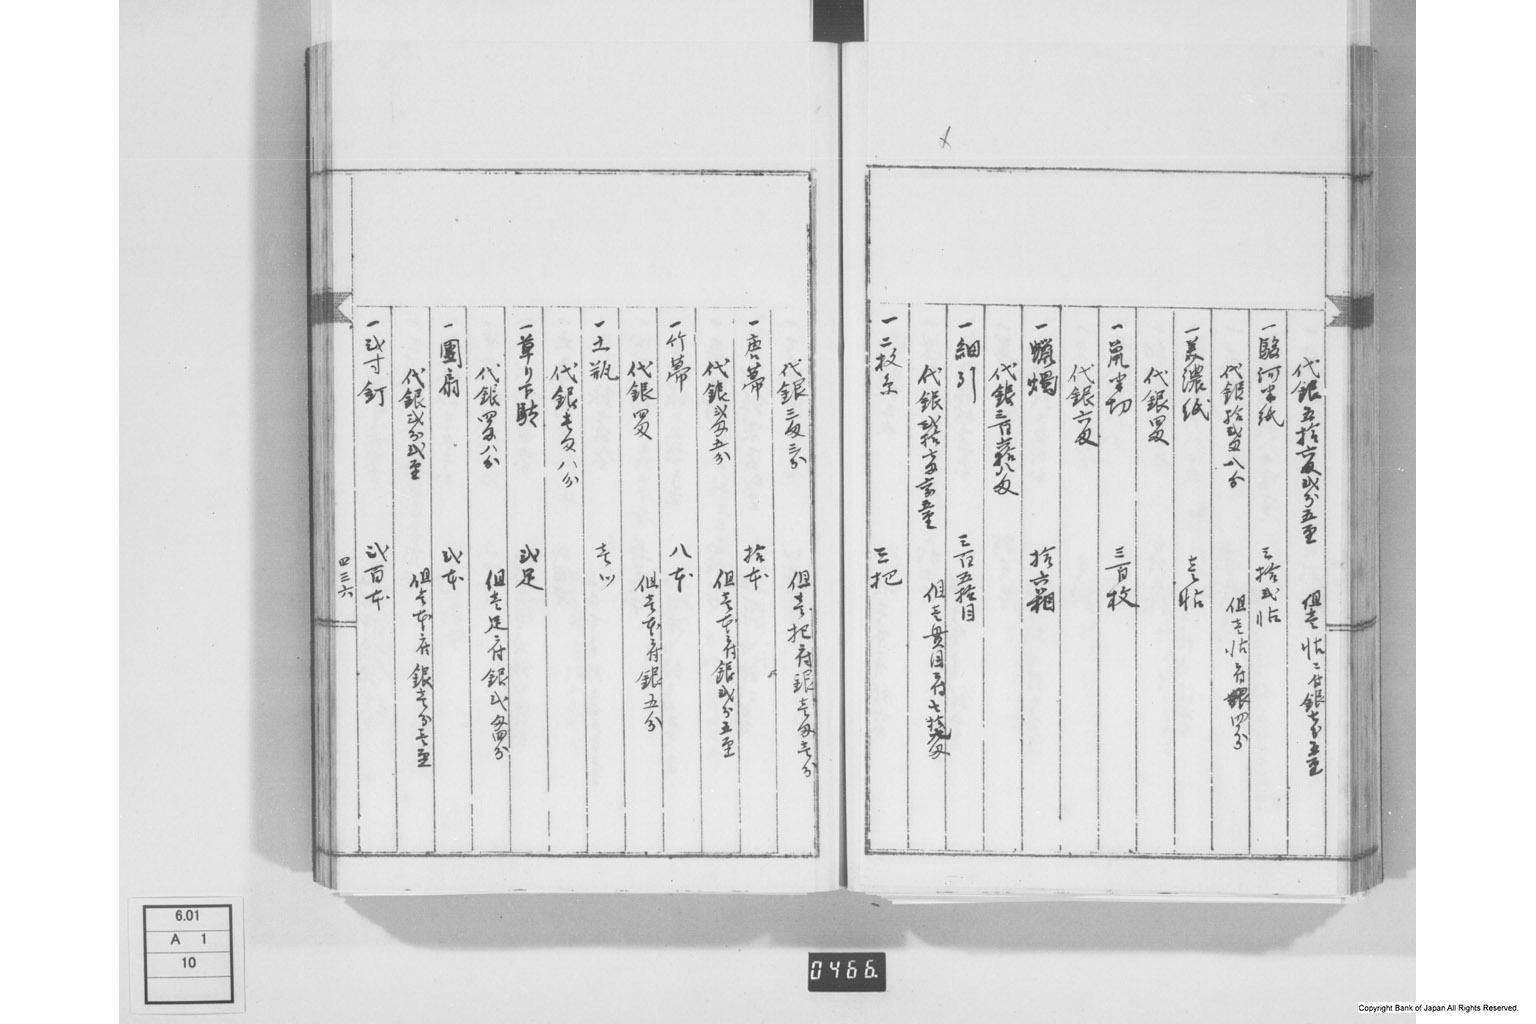 代銀五拾六匁弐分五厘 但壱帖ニ付銀七分五厘
一駿河半紙 三拾弐帖
代銀拾弐匁八分 但壱帖ニ付銀四分
一美濃紙 壱帖
代銀四匁
一半切 三百枚
代銀六匁
一蝋燭 拾六箱
代銀三百六拾八匁
一細引 三百五拾目
代銀弐拾 但壱貫目ニ付七拾 匁
一二枚糸 三把
代銀三匁三分 但壱把ニ付銀壱匁壱分
一唐箒 拾本
代銀弐匁五分 但壱本ニ付銀弐分五厘
一竹箒 八本
代銀四匁 但壱本ニ付銀五分
一土瓶 壱ツ
代銀壱匁八分
一草り下駄 弐足
代銀四匁八分 但壱足ニ付銀弐匁四分
一團扇 弐本
代銀弐分弐厘 但壱本ニ付銀壱分壱厘
一弐寸釘 弐百本
四三六
6.01
A 1
10
0466
Copyright Bank of Japan All Rights Reserved.